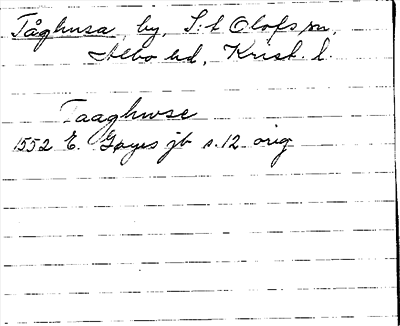 Tåghusa, by, S:t Olofs sn,
Albo hd, Krist. l.
Taaghwse
1552 E. Gøyes jb s.12 orig